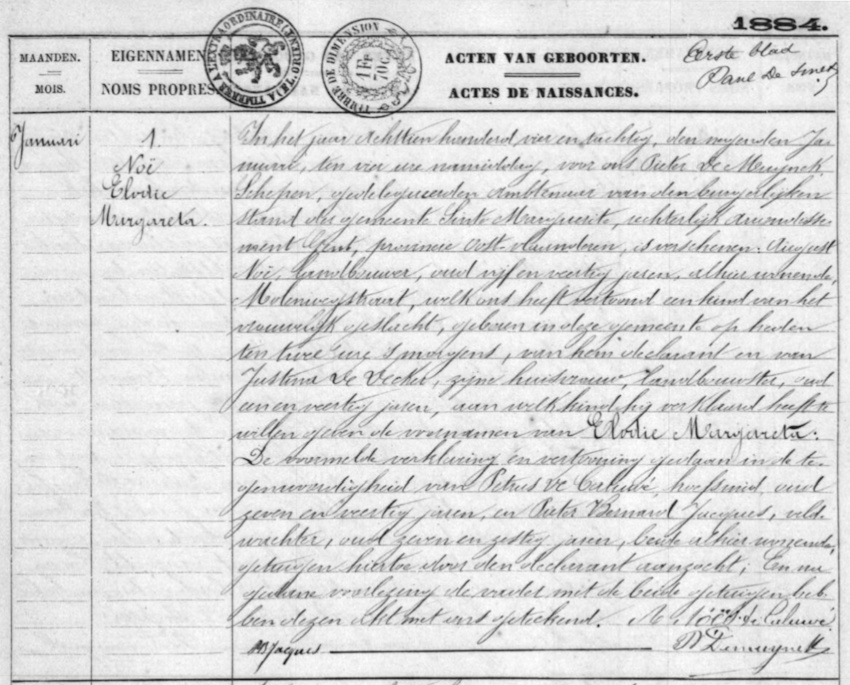 1884.
MAANDEN.
MOIS.
EIGENNAMEN
NOMS PROPRES
TIMBRE DE DIMENSION
1 Fr 70 C
ACTEN VAN GEBOORTEN.
ACTES DE NAISSANCES.
Eerste blad
Paul De Smet
6 Januari
1
Noë
Elodie
Margareta.
In het jaar achttien honderd vier en tachtig, den negenden Ja-
nuari, ten vier ure namiddag, voor ons Pieter De Muynck
Schepen, gedelegueerden Ambtenaar van den burgerlijken
stand der gemeente Sinte Marguerite, rechterlijk Arrondisse-
ment Gent, provincie Oost-Vlaanderen, is verschenen: August
Noë, Landbouwer, oud vijf en veertig jaren, alhier wonende,
Molenwegstraat, welk ons heeft vertoond een kind van het
vrouwelijk geslacht, geboren in deze gemeente op heden
ten twee ure 's morgens, van hem declarant en van
Justina De Decker, zijne huisvrouw, Landbouwster, oud
een en veertig jaren, aan welk kind hij verklaard heeft te
willen geven de voornamen van Elodie Margareta:
De voormelde verklaring en vertooning gedaan in de te-
genwoordigheid van Petrus De Caluwé, hoefsmid, oud
zeven en veertig jaren, en Pieter Bernard Jacques, veld-
wachter, oud zeven en zestig jaren, beide alhier wonende,
getuigen hiertoe door den declarant aanzocht; En na
gedane voorlezing de vader met de beide getuigen heb-
ben dezen akt met ons geteekend. A Noë P. de Caluwé
PB Jaques P Demuynck